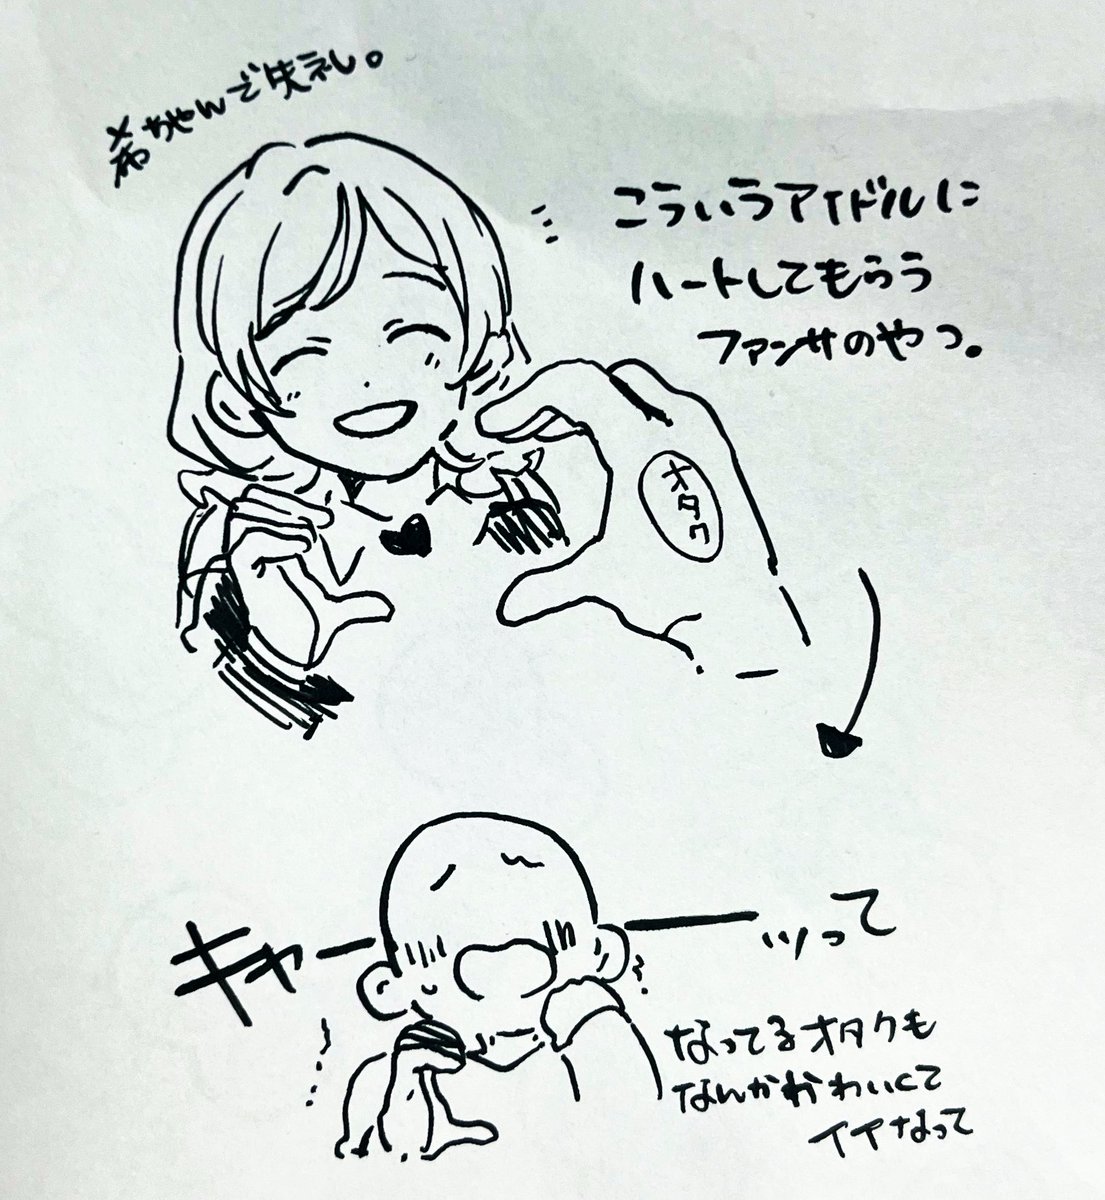 希ちゃんで失礼。
こういうアイドルに
ハートしてもらう
ファンサのやつ。
オタク
キャーーッって
なってるオタクも
なんかかわいくて
イイなって